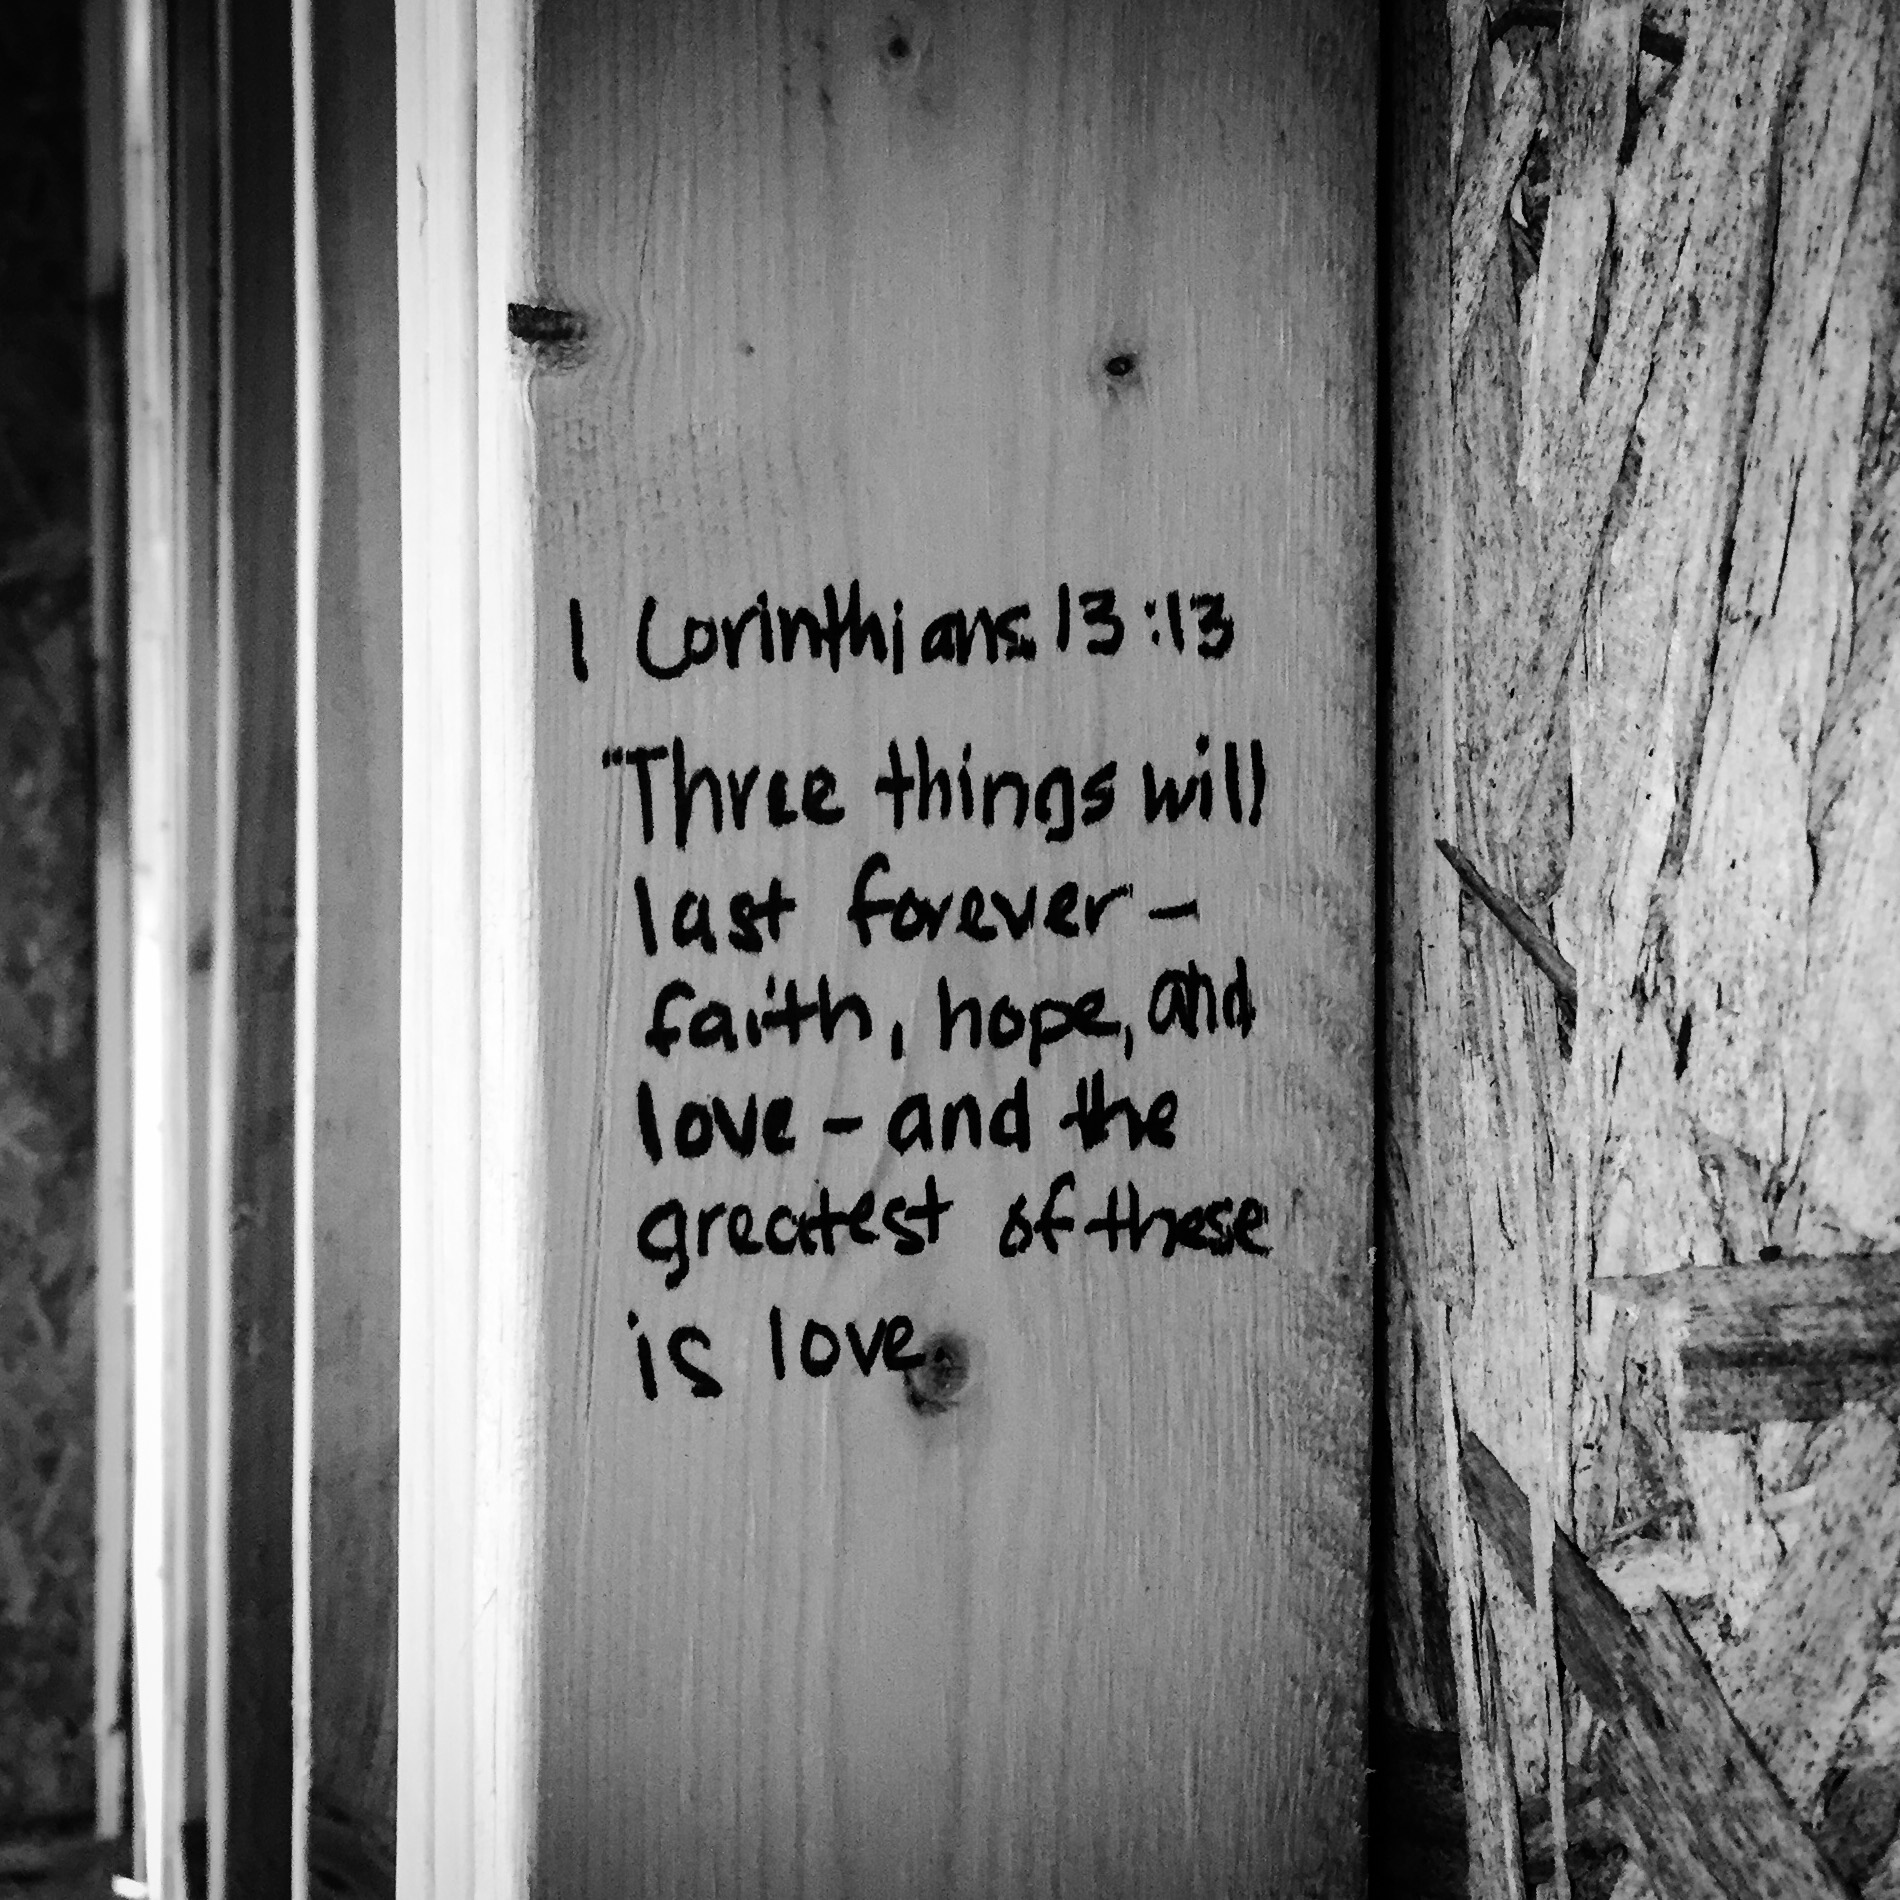 1 Corinthians 13:13
"Three things will
last forever -
faith, hope, and
love - and the
greatest of these
is love.